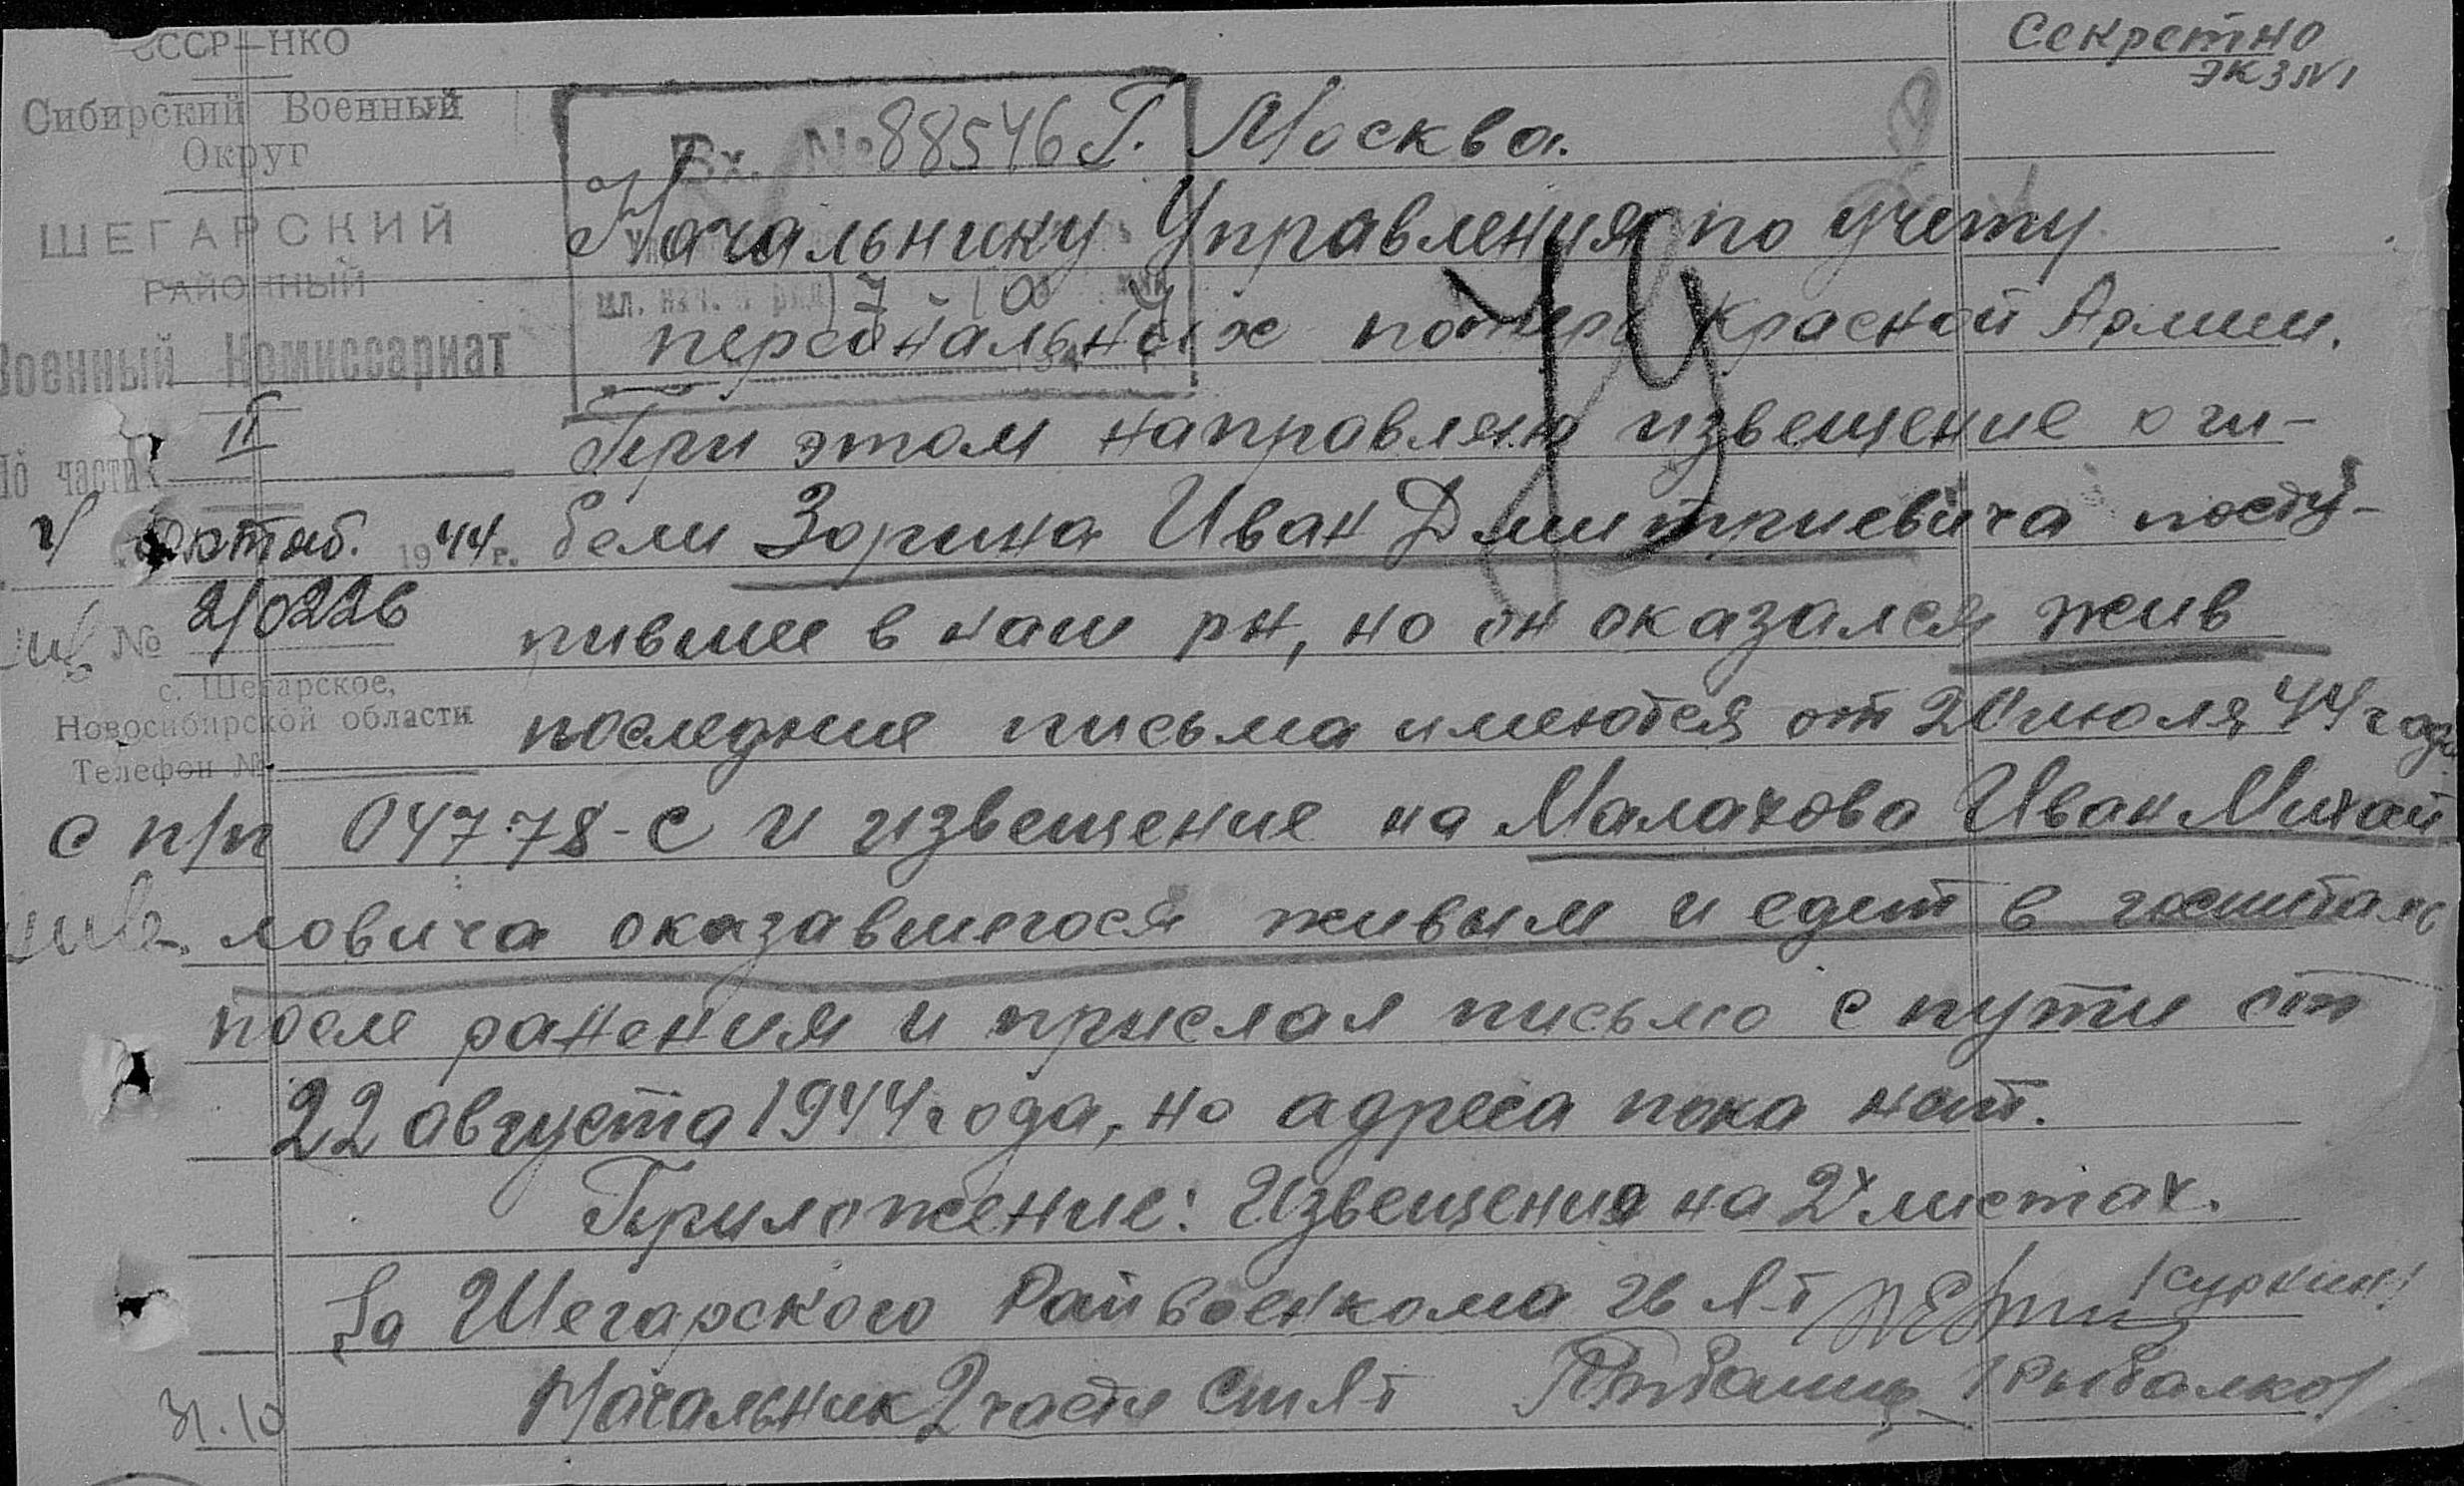 СССР—НКО
Сибирский Военный
Округ
ШЕГАРСКИЙ
РАЙОННЫЙ
Военный Комиссариат
II
По части
4 октяб. 1944 г.
№ 2/0226
с. Шегарское,
Новосибирской области
Телефон №
Секретно
экз №1
Вх. № 88546
17 - 10
Г. Москва.
Начальнику Управления по учету
персональных потерь Красной Армии.
При этом направляю извещение о ги-
бели Зорина Иван Дмитриевича посту-
пившее в наш рн, но он оказался жив
последние письма имеются от 20 июля 44 года
с п/п 04778-с и извещение на Малахова Иван Михай
ловича оказавшегося живым и едет в госпиталь
после ранения и прислал письмо с пути от
22 августа 1944 года, но адреса пока нет.
Приложение: Извещения на 2х листах.
За Шегарского Райвоенкома гв л-т /Суркин/
Начальник 2 части ст л-т /Рыбалко/
31.10